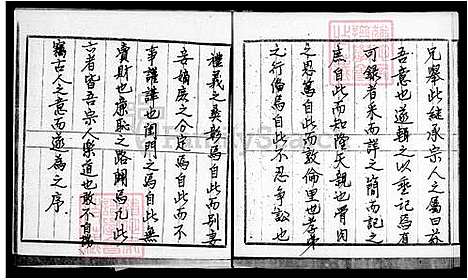 兄舉此繼承宗人之屬曰茲
吾意也遂輯之以乘記焉有
可錄者采而詳之簡而記之
庶自此而知陰天親也骨肉
之恩篤自此而敦倫里也孝弟
之行脩焉自此不忍爭訟也
禮義之奧彰焉自此而別妻
妾嫡庶之分定焉自此而不
事謹譁也閨門之焉自此無
賣財也廉恥之路開焉凡此
言者皆吾宗人樂道也敢不自揣
竊古人之意而遂為之序